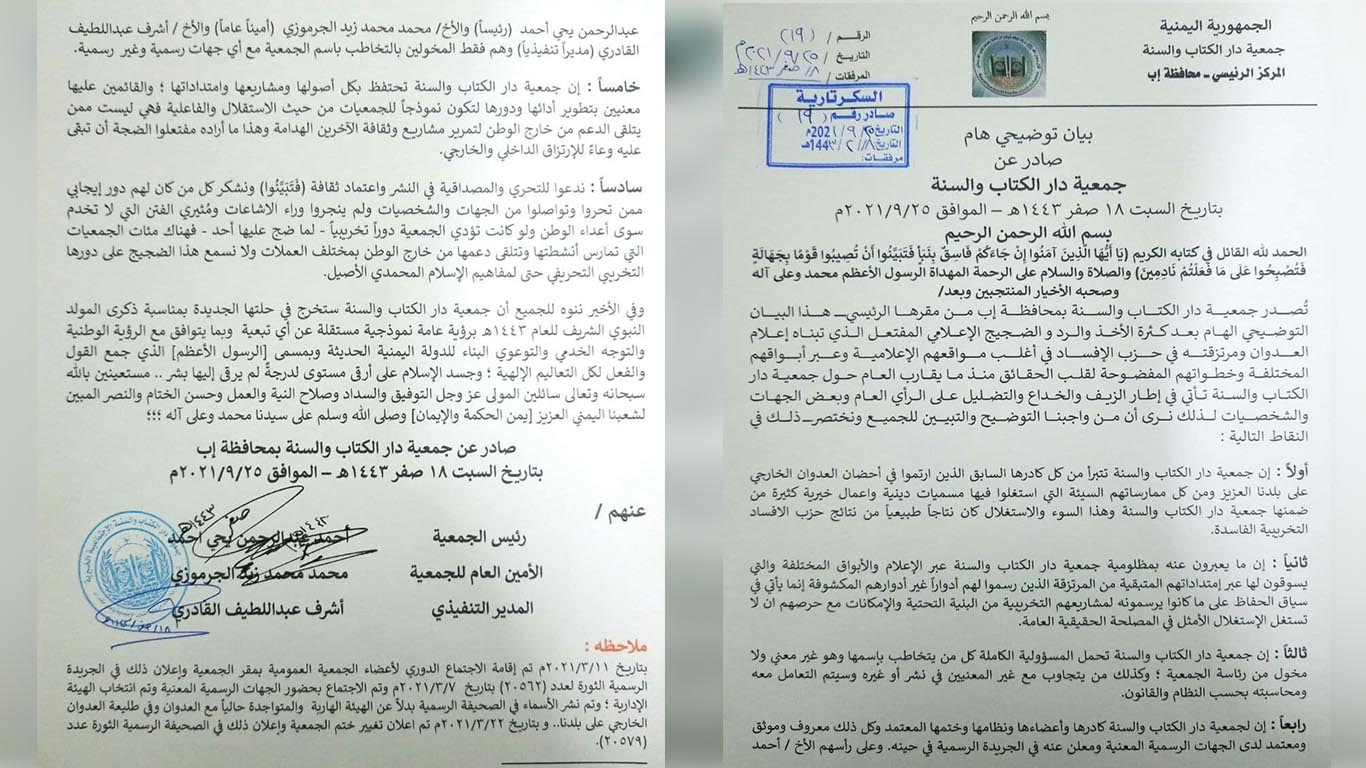 بسم الله الرحمن الرحيم
الجمهورية اليمنية
جمعية دار الكتاب والسنة
المركز الرئيسي - محافظة إب
الرقم / (١٩)
التاريخ / ٢٠٢١/٩/٢٥م
١٨ صفر ١٤٤٣هـ
المرفقات /
السكرتارية
صادر رقم ( ١٩ )
التاريخ ٢٥ / ٩ / 2021م
التاريخ ١٨ / ٢ / 1443هـ
مرفقات:
بيان توضيحي هام
صادر عن
جمعية دار الكتاب والسنة
بتاريخ السبت ١٨ صفر ١٤٤٣هـ – الموافق ٢٠٢١/٩/٢٥م
بسم الله الرحمن الرحيم
الحمد لله القائل في كتابه الكريم (يَا أَيُّهَا الَّذِينَ آمَنُوا إِنْ جَاءَكُمْ فَاسِقٌ بِنَبَأٍ فَتَبَيَّنُوا أَنْ تُصِيبُوا قَوْمًا بِجَهَالَةٍ
فَتُصْبِحُوا عَلَى مَا فَعَلْتُمْ نَادِمِينَ) والصلاة والسلام على الرحمة المهداة الرسول الأعظم محمد وعلى آله
وصحبه الأخيار المنتجبين وبعد/
تُصدر جمعية دار الكتاب والسنة بمحافظة إب من مقرها الرئيسي هذا البيان
التوضيحي الهام بعد كثرة الأخذ والرد و الضجيج الإعلامي المفتعل الذي تبناه إعلام
العدوان ومرتزقته في حزب الإفساد في أغلب مواقعهم الإعلامية وعبر أبواقهم
المختلفة وخطواتهم المفضوحة لقلب الحقائق منذ ما يقارب العام حول جمعية دار
الكتاب والسنة تأتي في إطار الزيف والخداع والتضليل على الرأي العام وبعض الجهات
والشخصيات لذلك نرى أن من واجبنا التوضيح والتبيين للجميع ونختصر ذلك في
النقاط التالية :
أولاً : إن جمعية دار الكتاب والسنة تتبرأ من كل كادرها السابق الذين ارتموا في أحضان العدوان الخارجي
على بلدنا العزيز ومن كل ممارساتهم السيئة التي استغلوا فيها مسميات دينية واعمال خيرية كثيرة من
ضمنها جمعية دار الكتاب والسنة وهذا السوء والاستغلال كان نتاجاً طبيعياً من نتائج حزب الافساد
التخريبية الفاسدة.
ثانياً : إن ما يعبرون عنه بمظلومية جمعية دار الكتاب والسنة عبر الإعلام والأبواق المختلفة والتي
يسوقون لها عبر إمتداداتهم المتبقية من المرتزقة الذين رسموا لهم أدواراً غير أدوارهم المكشوفة إنما يأتي في
سياق الحفاظ على ما كانوا يرسمونه لمشاريعهم التخريبية من البنية التحتية والإمكانات مع حرصهم ان لا
تستغل الإستغلال الأمثل في المصلحة الحقيقية العامة.
ثالثاً : إن جمعية دار الكتاب والسنة تحمل المسؤولية الكاملة كل من يتخاطب بإسمها وهو غير معني ولا
مخول من رئاسة الجمعية ؛ وكذلك من يتجاوب مع غير المعنيين في نشر أو غيره وسيتم التعامل معه
ومحاسبته بحسب النظام والقانون.
رابعاً : إن لجمعية دار الكتاب والسنة كادرها وأعضاءها ونظامها وختمها المعتمد وكل ذلك معروف وموثق
ومعتمد لدى الجهات الرسمية المعنية ومعلن عنه في الجريدة الرسمية في حينه. وعلى رأسهم الأخ / أحمد
عبدالرحمن يحي أحمد (رئيساً) والأخ/ محمد محمد زيد الجرموزي (أميناً عاماً) والأخ / أشرف عبداللطيف
القادري (مديراً تنفيذياً) وهم فقط المخولين بالتخاطب باسم الجمعية مع أي جهات رسمية وغير رسمية.
خامساً : إن جمعية دار الكتاب والسنة تحتفظ بكل أصولها ومشاريعها وامتداداتها ؛ والقائمين عليها
معنيين بتطوير أدائها ودورها لتكون نموذجاً للجمعيات من حيث الاستقلال والفاعلية فهي ليست ممن
يتلقى الدعم من خارج الوطن لتمرير مشاريع وثقافة الآخرين الهدامة وهذا ما أراده مفتعلوا الضجة أن تبقى
عليه وعاءً للإرتزاق الداخلي والخارجي.
سادساً : ندعوا للتحري والمصداقية في النشر واعتماد ثقافة (فَتَبَيَّنُوا) ونشكر كل من كان لهم دور إيجابي
ممن تحروا وتواصلوا من الجهات والشخصيات ولم ينجروا وراء الاشاعات ومُثيري الفتن التي لا تخدم
سوى أعداء الوطن ولو كانت تؤدي الجمعية دوراً تخريبياً - لما ضج عليها أحد - فهناك مئات الجمعيات
التي تمارس أنشطتها وتتلقى دعمها من خارج الوطن بمختلف العملات ولا نسمع هذا الضجيج على دورها
التخريبي التحريفي حتى لمفاهيم الإسلام المحمدي الأصيل.
وفي الأخير ننوه للجميع أن جمعية دار الكتاب والسنة ستخرج في حلتها الجديدة بمناسبة ذكرى المولد
النبوي الشريف للعام ١٤٤٣هـ برؤية عامة نموذجية مستقلة عن أي تبعية وبما يتوافق مع الرؤية الوطنية
والتوجه الخدمي والتوعوي البناء للدولة اليمنية الحديثة وبمسمى [الرسول الأعظم] الذي جمع القول
والفعل لكل التعاليم الإلهية ؛ وجسد الإسلام على أرقى مستوى لدرجةً لم يرقى إليها بشر .. مستعينين بالله
سبحانه وتعالى سائلين المولى عز وجل التوفيق والسداد وصلاح النية والعمل وحسن الختام والنصر المبين
لشعبنا اليمني العزيز [يمن الحكمة والإيمان] وصلى الله وسلم على سيدنا محمد وعلى آله ؛؛؛
صادر عن جمعية دار الكتاب والسنة بمحافظة إب
بتاريخ السبت ١٨ صفر ١٤٤٣هـ – الموافق ٢٠٢١/٩/٢٥م
عنهم /
رئيس الجمعية أحمد عبدالرحمن يحي احمد
الأمين العام للجمعية محمد محمد زيد الجرموزي
المدير التنفيذي أشرف عبداللطيف القادري
ملاحظه :
بتاريخ ٢٠٢١/٣/١١م تم إقامة الاجتماع الدوري لأعضاء الجمعية العمومية بمقر الجمعية وإعلان ذلك في الجريدة
الرسمية الثورة لعدد (٢٠٥٦٢) بتاريخ ٢٠٢١/٣/٧م وتم الاجتماع بحضور الجهات الرسمية المعنية وتم انتخاب الهيئة
الإدارية ؛ وتم نشر الأسماء في الصحيفة الرسمية بدلاً عن الهيئة الهارية والمتواجدة حالياً مع العدوان وفي طليعة العدوان
الخارجي على بلدنا.. و بتاريخ ٢٠٢١/٣/٢٢م تم اعلان تغيير ختم الجمعية وإعلان ذلك في الصحيفة الرسمية الثورة عدد
(٢٠٥٧٩).